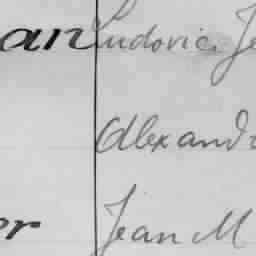 an Ludovic Je
Alexand
er Jean M